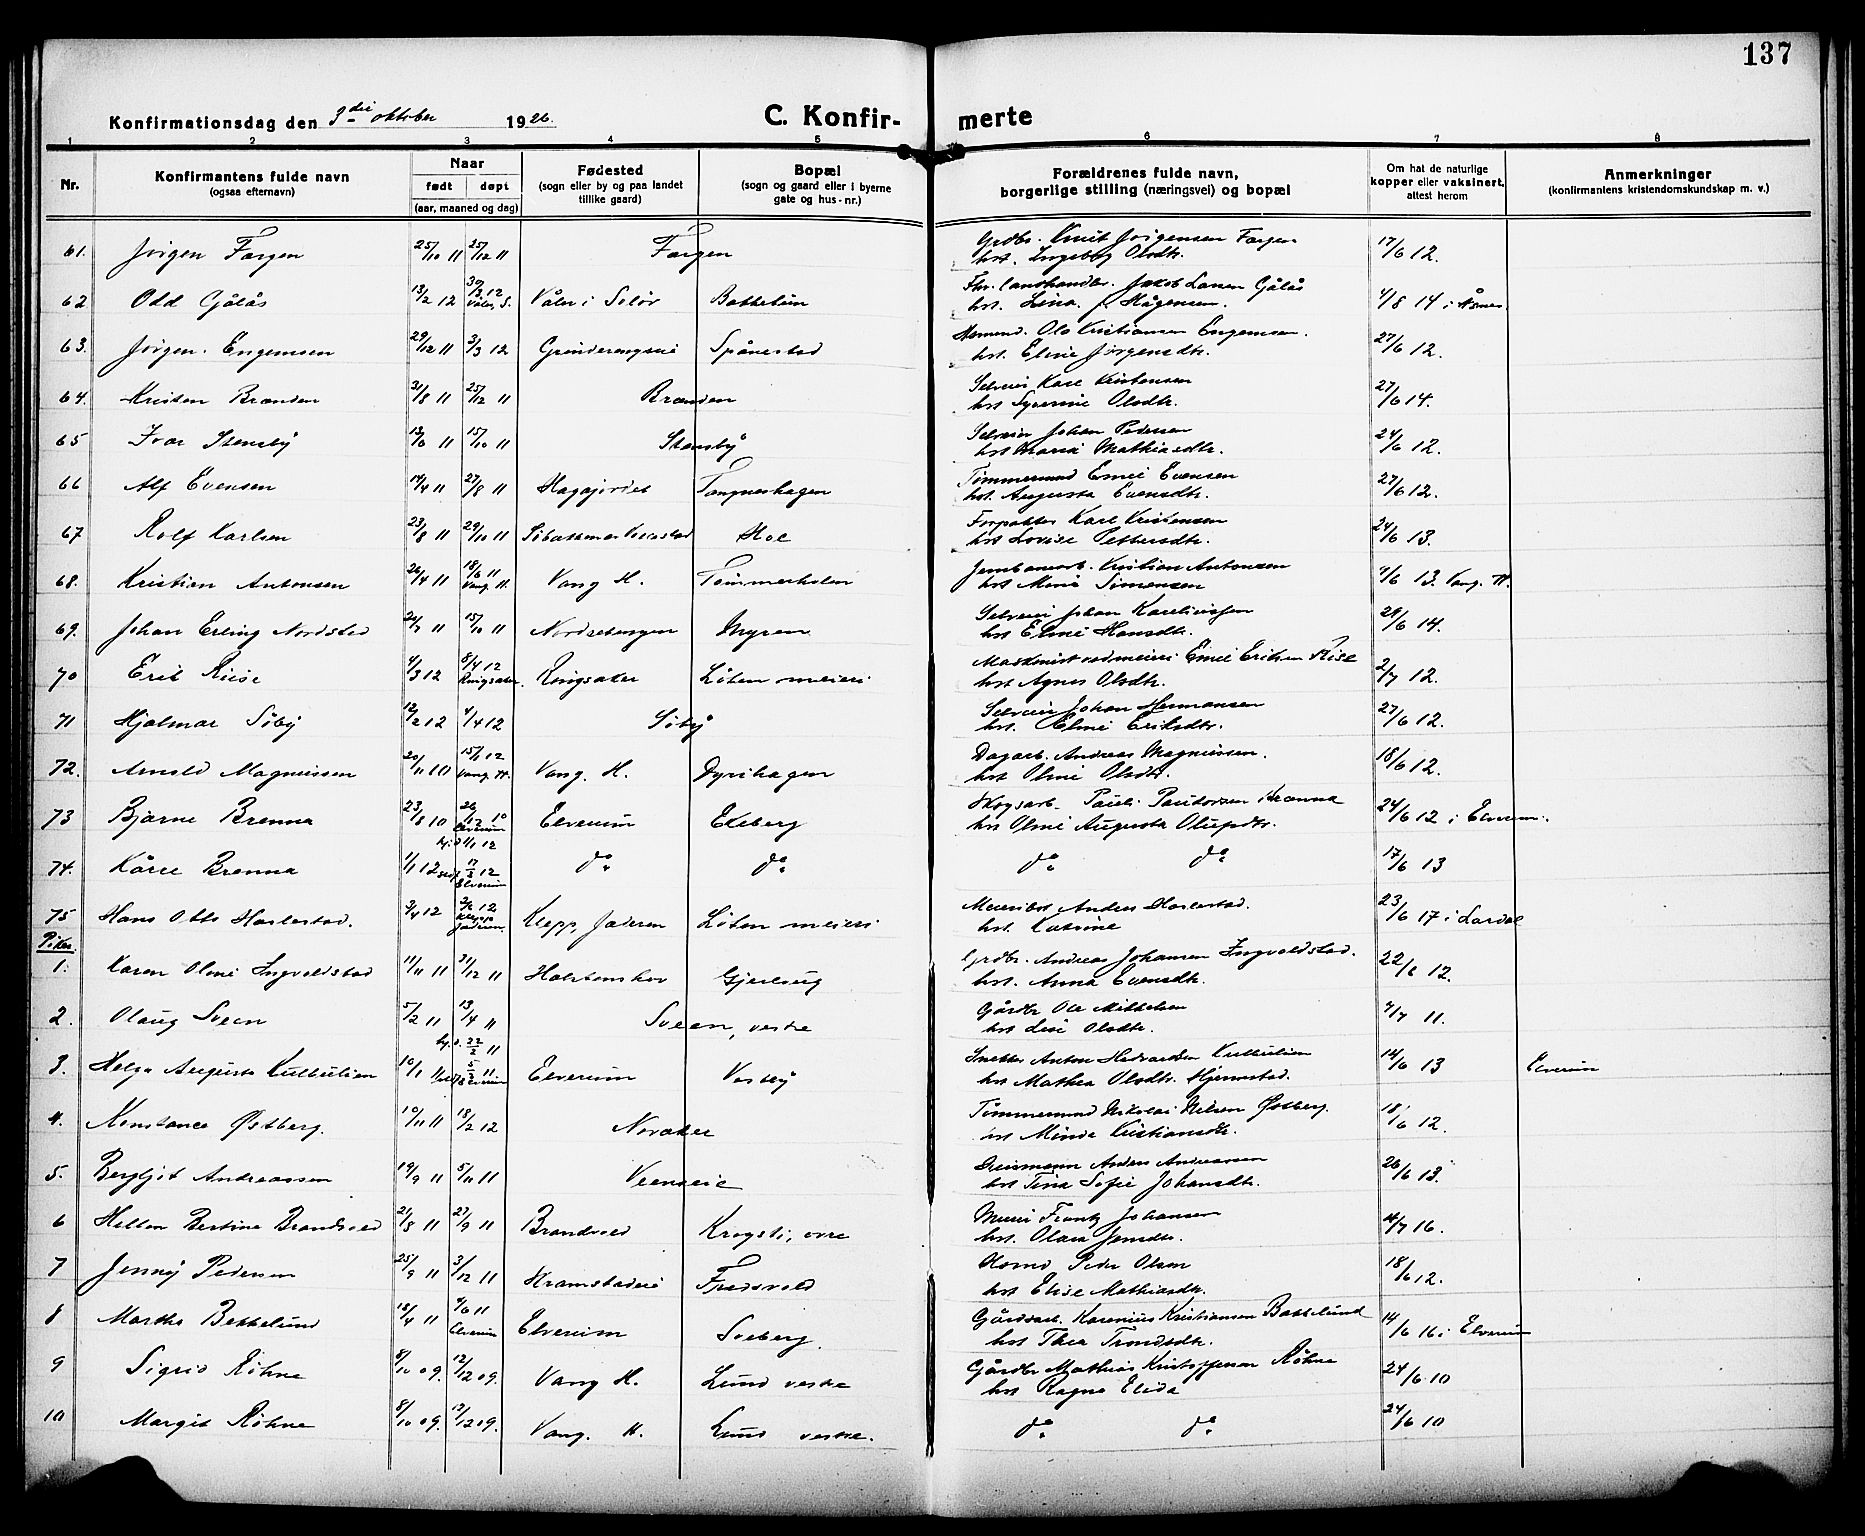 137
Konfirmationsdag den 3die oktober 1926.
C. Konfirmerte
1 2 3 4 5 6 7 8
Nr.
Konfirmantens fulde navn
(ogsaa efternavn)
Naar
født døpt
(aar, maaned og dag)
Fødested
(sogn eller by og paa landet
tillike gaard)
Bopæl
(sogn og gaard eller i byerne
gate og hus-nr.)
Forældrenes fulde navn,
borgerlige stilling (næringsvei) og bopæl
Om hat de naturlige
kopper eller vaksinert,
attest herom
Anmerkninger
(konfirmantens kristendomskundskap m. v.)
61. Jørgen Fargen 25/10 11 25/12 11 Fargen Grdbr. Knut Jørgensen Fargen 17/6 12.
hst. Ingeborg Olsdtr.
62 Odd Gålås 13/2 12 30/3 12 Våler i Solør Bakkelun Fhv. landhandler Jakob Larsen Gålås 4/8 14 i Åsnes.
Våler, S. hst. Lina f. Hågensen.
63. Jørgen Engemsen 29/12 11 3/3 12 Grinderengseie Spånestad Ole Kristiansen Engemsen. 27/6 12.
hst. Eline Jørgensdtr.
64. Kristen Brænden 31/8 11 25/12 11 Brænden Selveier Karl Kristensen 27/6 14.
hst Syverine Olsdtr.
65 Ivar Stensby 13/6 11 15/10 11 Stensby Selveier Johan Pedersen 24/6 12.
hst Maria Mathiasdtr.
66 Alf Evensen 14/4 11 27/8 11 Hagajordet Tangneshagen Tømmermand Emil Evensen 27/6 12.
hst. Augusta Evensdtr.
67 Rolf Karlsen 23/8 11 29/10 11 Hol Forpakter Karl Kristensen 24/6 13.
hst Lovise Pettersdtr.
68. Kristian Antonsen 26/4 11 18/6 11 Vang H. Tømmerholen Jernbanearb. Kristian Antonsen 7/6 13. Vang. H.
Vang. H. hst Mina Simensen
69. Johan Erling Nordstad 20/7 11 15/10 11 Nordsetengen Myren Selveier Johan 29/6 14.
hst Eline Hansdtr.
70 Erik Riise 4/3 12 8/4 12 Ringsaker Løten meieri Maskinist ved meieri Emil Eriksen Riise 2/7 12.
Ringsaker. hst Agnes Olsdtr.
71 Hjalmar Søby 12/2 12 4/4 12 Søby Selveier Johan Hermansen 27/6 12.
hst. Eline Eriksdtr.
72. Arnold Magnussen 20/11 10 15/1 12 Vang. H. Dyrihagen Dagarb. Andreas Magnussen. 18/6 12.
Vang. H. hst Oline Olsdtr.
73 Bjarne Brenna 23/8 10 26/12 10 Elverum Ekeberg Skogsarb. Paul Paulsen Brenna 24/6 12 i Elverum.
Elverum hst Oline Augusta Olufsdtr.
hj.d. 1/1 12
74. Kåre Brenna 1/1 12 17/3 12 do do do do 17/6 13
Elverum
75 Hans Otto Harlestad. 3/4 12 Klepp, Jæderen Løten meieri Meieribst Anders Harlestad. 23/6 17 i Lardal
Klepp Jæderen. hst. Katrine
Piker.
1. Karen Oline Ingvaldstad 11/11 11 31/12 11 Holstenskov Gjerlaug Grdbr. Andreas Johansen Ingvaldstad. 22/6 12.
hst. Anna Evensdtr.
2. Olaug Sveen 5/2 11 13/4 11 Sveen, vestre Gårdbr Ole Mikkelsen 4/7 11.
hst Lise Olsdtr.
hj. d. 22/2 11
3. Helga Augusta Kulbulien 10/1 11 5/3 11 Elverum Vesby Snekker Anton Hedvardsen Kulbulien 14/6 13 Elverum
Elverum hst Mathea Olsdtr. Hjernstad.
4. Konstance Østberg. 10/11 11 18/2 12 Noraker Tømmermand Nikolai Nilsen Østberg. 18/6 12.
hst Minda Kristiansdtr.
5. Bergljot Andreassen 19/9 11 5/11 11 Veenseie Anders Andreassen 26/6 13.
hst Tina Sofie Johansdtr.
6 Hellen Bertine Brandvold 21/8 11 27/9 11 Brandvold Krogsti, øvre Murer Frantz Johansen 14/7 16.
hst. Olava Jensdtr.
7 Jenny Pedersen 25/9 11 3/12 11 Kramstadeie Fredsvold Peder Olsen 18/6 12.
hst Elise Mathiasdtr.
8 Martha Bekkelund 18/4 11 4/6 11 Elverum Soeberg. Gårdsarb. Karenius Kristiansen Bakkelund 14/6 16 i Elverum
Elverum hst Thea Trondsdtr.
9 Sigrid Røhne 8/10 09. 12/12 09. Vang H. Lund vestre Gårdbr Mathias Kristoffersen Røhne 24/6 10
hst Ragna Elida
10 Margit Røhne 8/10 09. 12/12 09. Vang. H. Lund vestre. do do 24/6 10